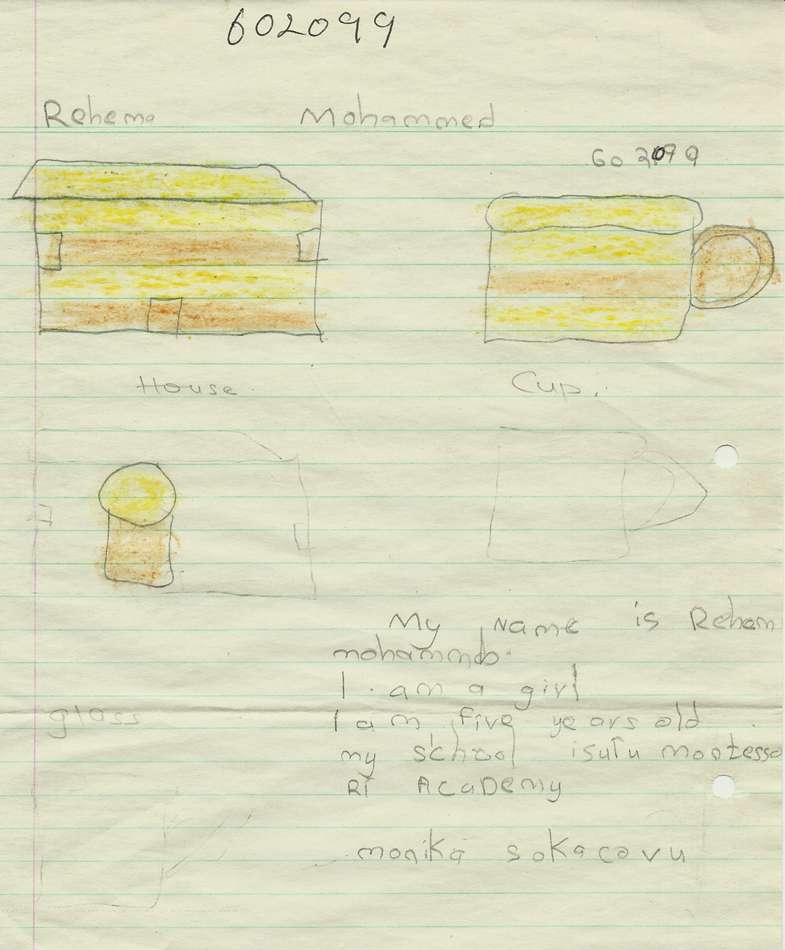 602099
Rehema Mohammed
602099
House.
Cup.
My Name is Reham
mohammdo.
I. am a girl
I am five years old.
my school isutu montesso
Ri AcaDemy
glass
monika sokacovu